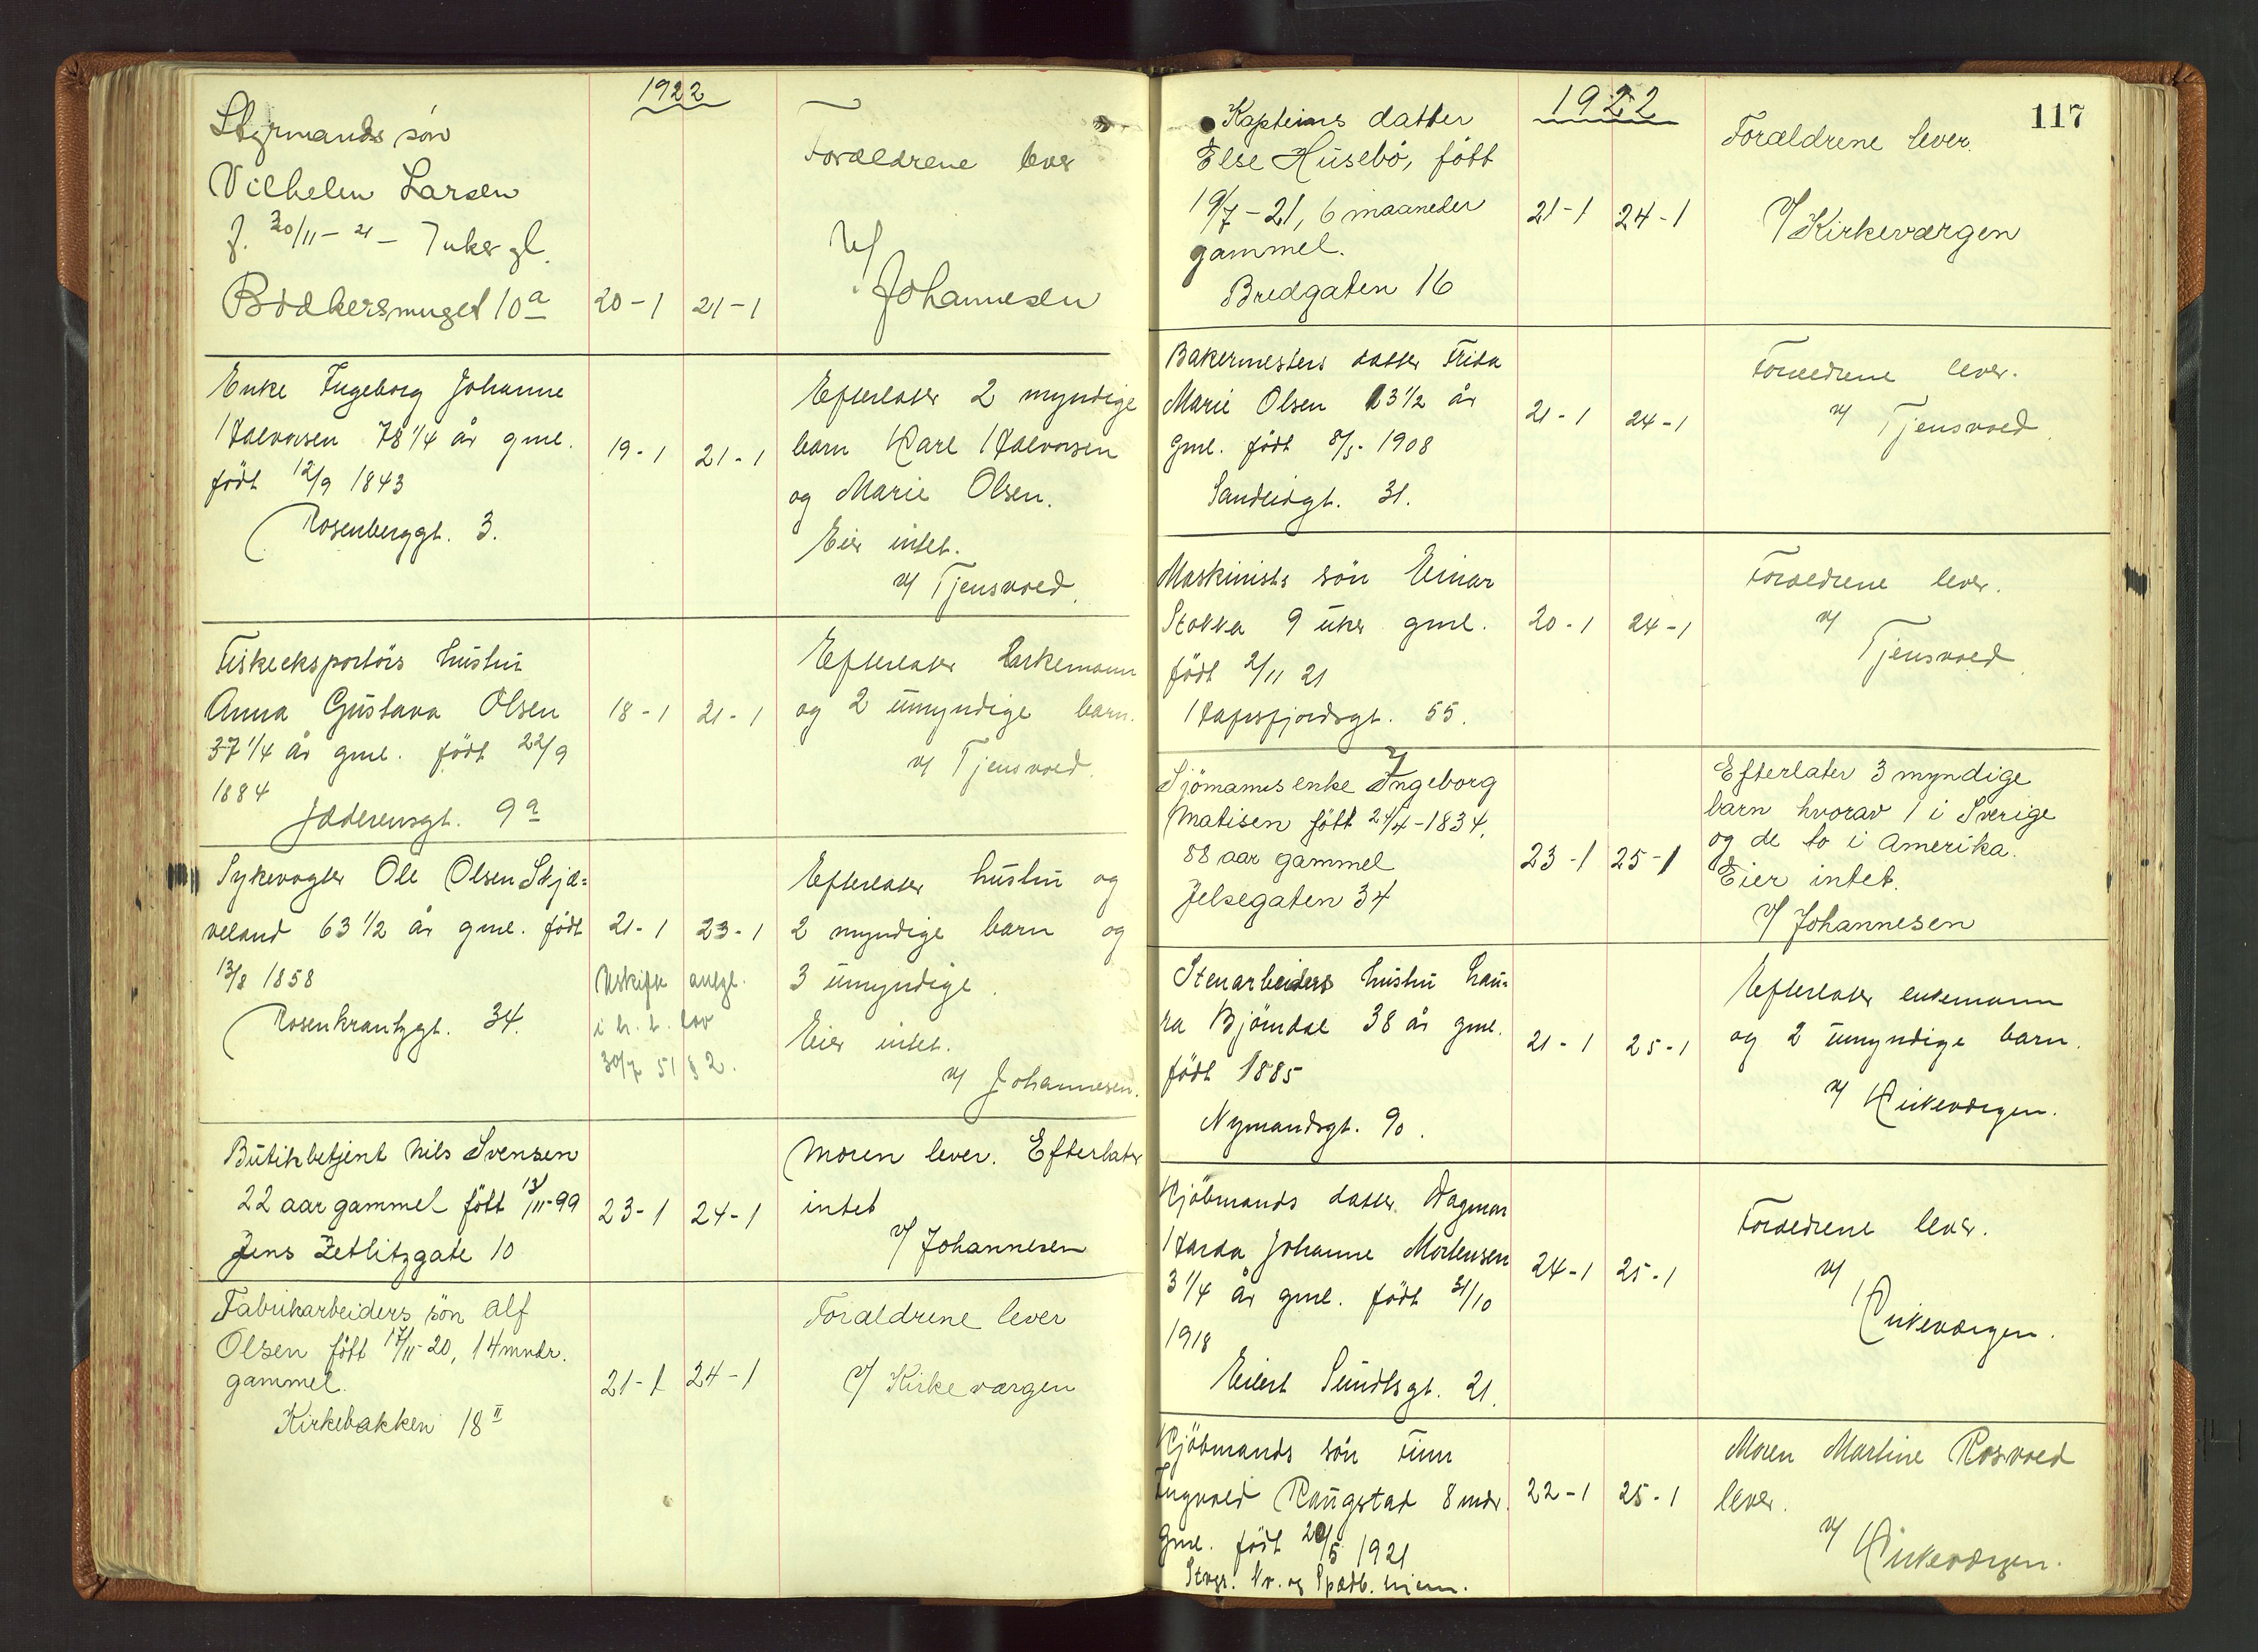 1922
Styrmands søn
Vilhelm Larsen
f. 30/11 - 21 - 7 uker gl.
Bødkersmuget 10a
20-1
21-1
Forældrene lever
v/
Johannesen
Enke Ingeborg Johanne
Halvorsen 78 1/4 år gml.
født 12/9 1843
Rosenberggt. 3.
19-1
21-1
Efterlater 2 myndige
barn Karl Halvorsen
og Marie Olsen.
Eier intet.
v/ Tjensvold.
Fiskeeksportørs hustru
Anna Gustava Olsen
37 1/4 år gml. født 22/9
1884
Jæderensgt. 9a
18-1
21-1
Efterlater Enkemann
og 2 umyndige barn.
v/ Tjensvold.
Sykevogter Ole Olsen Skjæ=
veland 63 1/2 år gml. født
13/8 1858
Rosenkrantzgt. 34.
21-1
23-1
Uskifte
i h. t. lov
30/7 51 § 2.
Efterlater hustru og
2 myndige barn og
3 umyndige.
Eier intet.
v/ Johannesen.
Butikbetjent Nils Svensen
22 aar gammel født 13/11-99
Jens Zetlitzgate 10
23-1
24-1
Moren lever. Efterlater
intet
v/ Johannesen
Fabrikarbeiders søn Alf
Olsen født 17/11-20, 14 mndr.
gammel.
Kirkebakken 18 II
21-1
24-1
Forældrene lever
v/ Kirkeværgen
1922
117
Kapteins datter
Else Husebø, født
19/7-21, 6 maaneder
gammel.
Bredgaten 16
21-1
24-1
Forældrene lever.
v/ Kirkeværgen
Bakermesters datter Frida
Marie Olsen 13 1/2 år
gml. født 8/5-1908
Sandeidgt. 31.
21-1
24-1
Forældrene lever.
v/ Tjensvold.
Maskinists søn Einar
Stokka 9 uker gml.
født 2/11 21
Hafrsfjordsgt. 55.
20-1
24-1
Forældrene lever.
v/
Tjensvold.
Sjømanns enke Ingeborg
Matisen født 24/4-1834,
88 aar gammel
Jelsegaten 34
23-1
25-1
Efterlater 3 myndige
barn hvorav 1 i Sverige
og de to i Amerika.
Eier intet.
v/ Johannesen
Stenarbeiders hustru Lau=
ra Bjørndal 38 år gml.
født 1885
Nymandsgt. 90.
21-1
25-1
Efterlater enkemann
og 2 umyndige barn.
v/ Kirkeværgen.
Kjøbmands datter Dagmar
Harda Johanne Mortensen
3 1/4 år gml. født 31/10
1918
Eilert Sundtsgt. 21.
24-1
25-1
Forældrene lever.
v/
Kirkeværgen.
Kjøbmands søn Finn
Ingvald Raugstad 8 mdr.
gml. født 20/5 1921
Stvgr. Kv. og Spædb. hjem.
22-1
25-1
Moren Martine Rosvold
lever.
v/ Kirkeværgen.